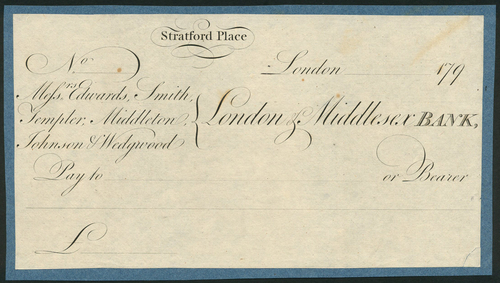 Stratford Place
No
London 179
Messrs Edwards, Smith,
Templer, Middleton,
Johnson & Wedgwood
London & Middlesex BANK,
Pay to or Bearer
£